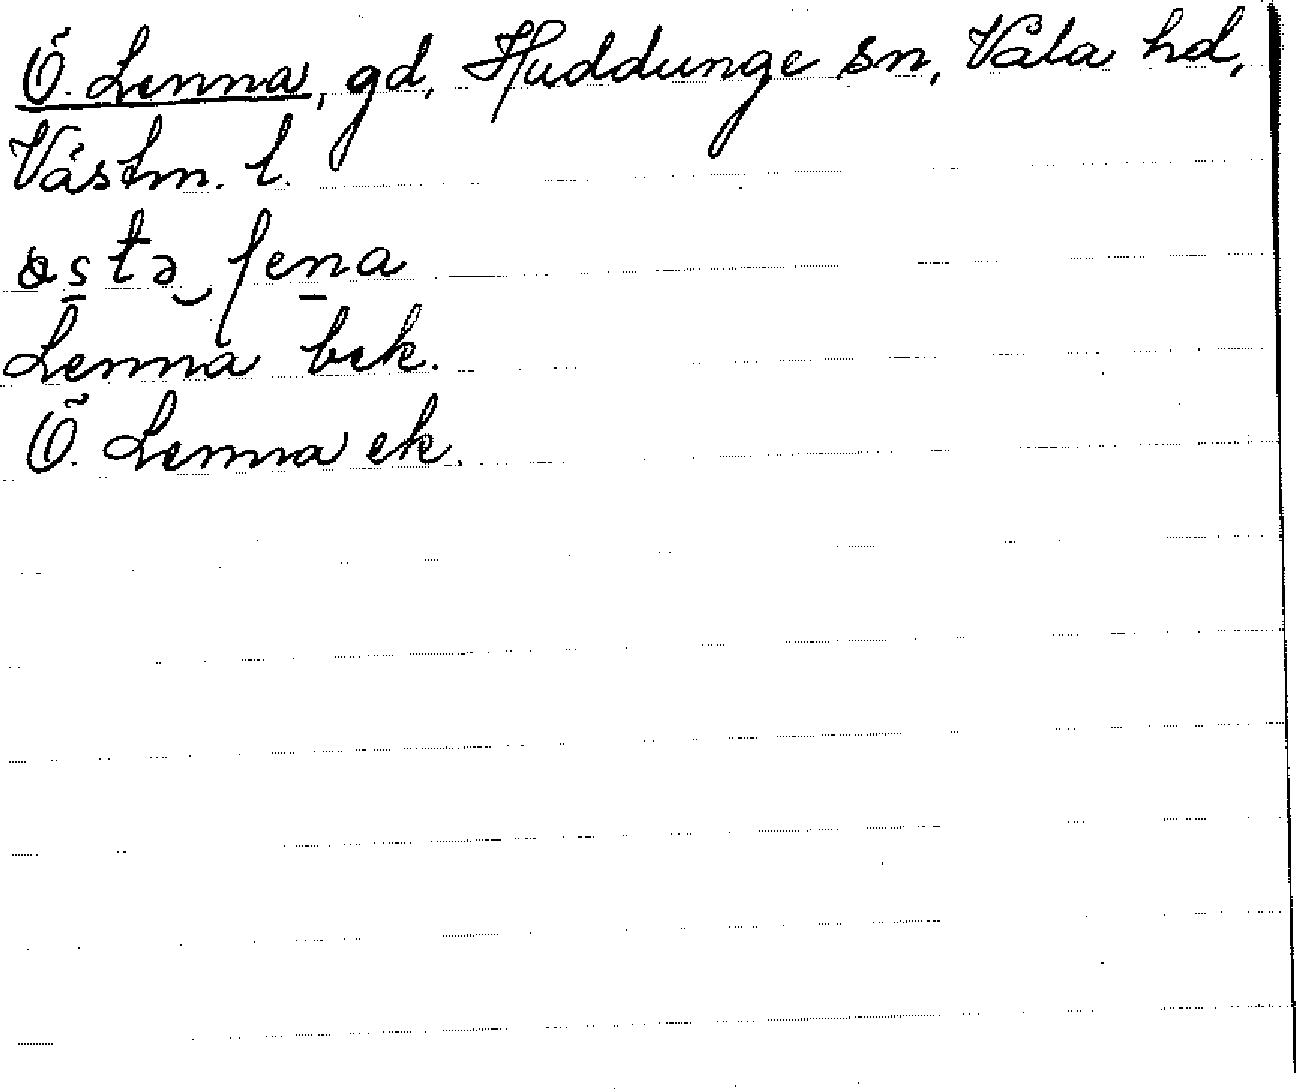 Ö. Lenna, gd, Huddunge sn, Våla hd,
Västm. l.
Lenna bek.
Ö. Lenna ek.